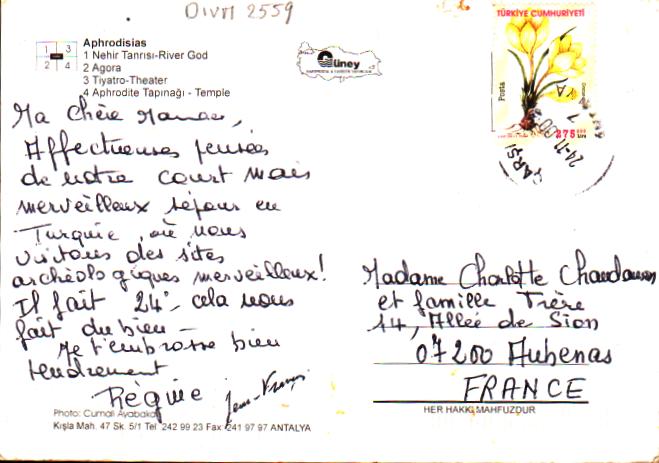 DIVM 2559
Aphrodisias
1 Nehir Tanrısı-River God
2 Agora
3 Tiyatro-Theater
4 Aphrodite Tapınağı - Temple
1 3
2 4
Güney
TÜRKİYE CUMHURİYETİ
Posta
275 000
LİRA
24-11
ÇARŞI
Ma chère Maman,
Affectueuses pensées
de notre court mais
merveilleux séjour en
Turquie, où nous
visitons des sites
archéologiques merveilleux!
Il fait 24°, cela nous
fait du bien –
Je t'embrasse bien
tendrement
Régine Jean-François
Madame Charlotte
et famille Frère
14, Allée de Sion
07200 Aubenas
FRANCE
Photo: Cumali Ayabakan
Kışla Mah. 47 Sk. 5/1 Tel 242 99 23 Fax 241 97 97 ANTALYA
HER HAKKI MAHFUZDUR